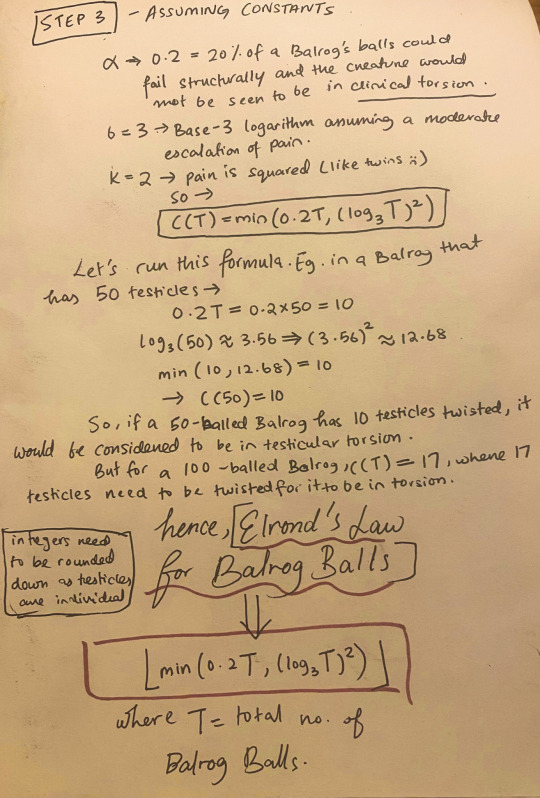 STEP 3 - ASSUMING CONSTANTS
α → 0.2 = 20% of a Balrog's balls could
fail structurally and the creature would
not be seen to be in clinical torsion.
b = 3 → Base-3 logarithm assuming a moderate
escalation of pain.
K = 2 → pain is squared (like twins :))
so →
C(T) = min(0.2T, (log₃T)²)
Let's run this formula. Eg. in a Balrog that
has 50 testicles →
0.2T = 0.2×50 = 10
log₃(50) ≈ 3.56 ⇒ (3.56)² ≈ 12.68
min (10, 12.68) = 10
→ C(50) = 10
So, if a 50-balled Balrog has 10 testicles twisted, it
would be considered to be in testicular torsion.
But for a 100-balled Balrog, C(T) = 17, where 17
testicles need to be twisted for it to be in torsion.
hence, Elrond's Law
for Balrog Balls
integers need
to be rounded
down as testicles
are individual
⇓
⌊min(0.2T, (log₃T)²)⌋
where T = total no. of
Balrog Balls.